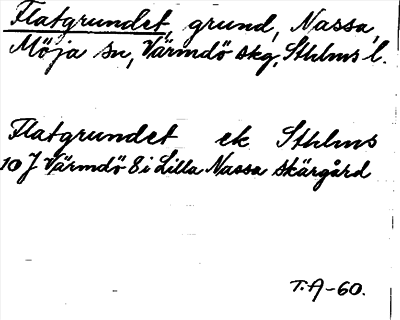 Flatgrundet, grund, Nassa,
Möja sn, Värmdö skg, Sthlms l.
Flatgrundet ek Sthlms
10 J Värmdö 8 i Lilla Nassa skärgård
T.A-60.